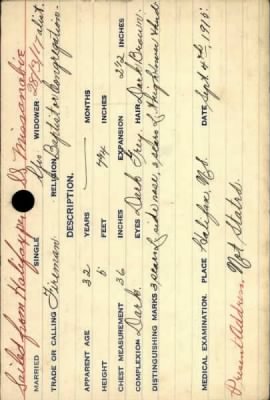 Sailed from Halifax per S.S. Missanabie
28/3/17
MARRIED SINGLE Yes WIDOWER
TRADE OR CALLING Fireman RELIGION Baptist or Congregation-
DESCRIPTION.
APPARENT AGE 32 YEARS MONTHS
HEIGHT 5 FEET 7¾ INCHES
CHEST MEASUREMENT 36 INCHES EXPANSION 2½ INCHES
COMPLEXION Dark EYES Dark Grey HAIR Dark Brown
DISTINGUISHING MARKS 3 scars L side nose, 2 scars L
MEDICAL EXAMINATION. PLACE Halifax, N.S. DATE Sept 4th, 1915
Present Address, Not Stated.